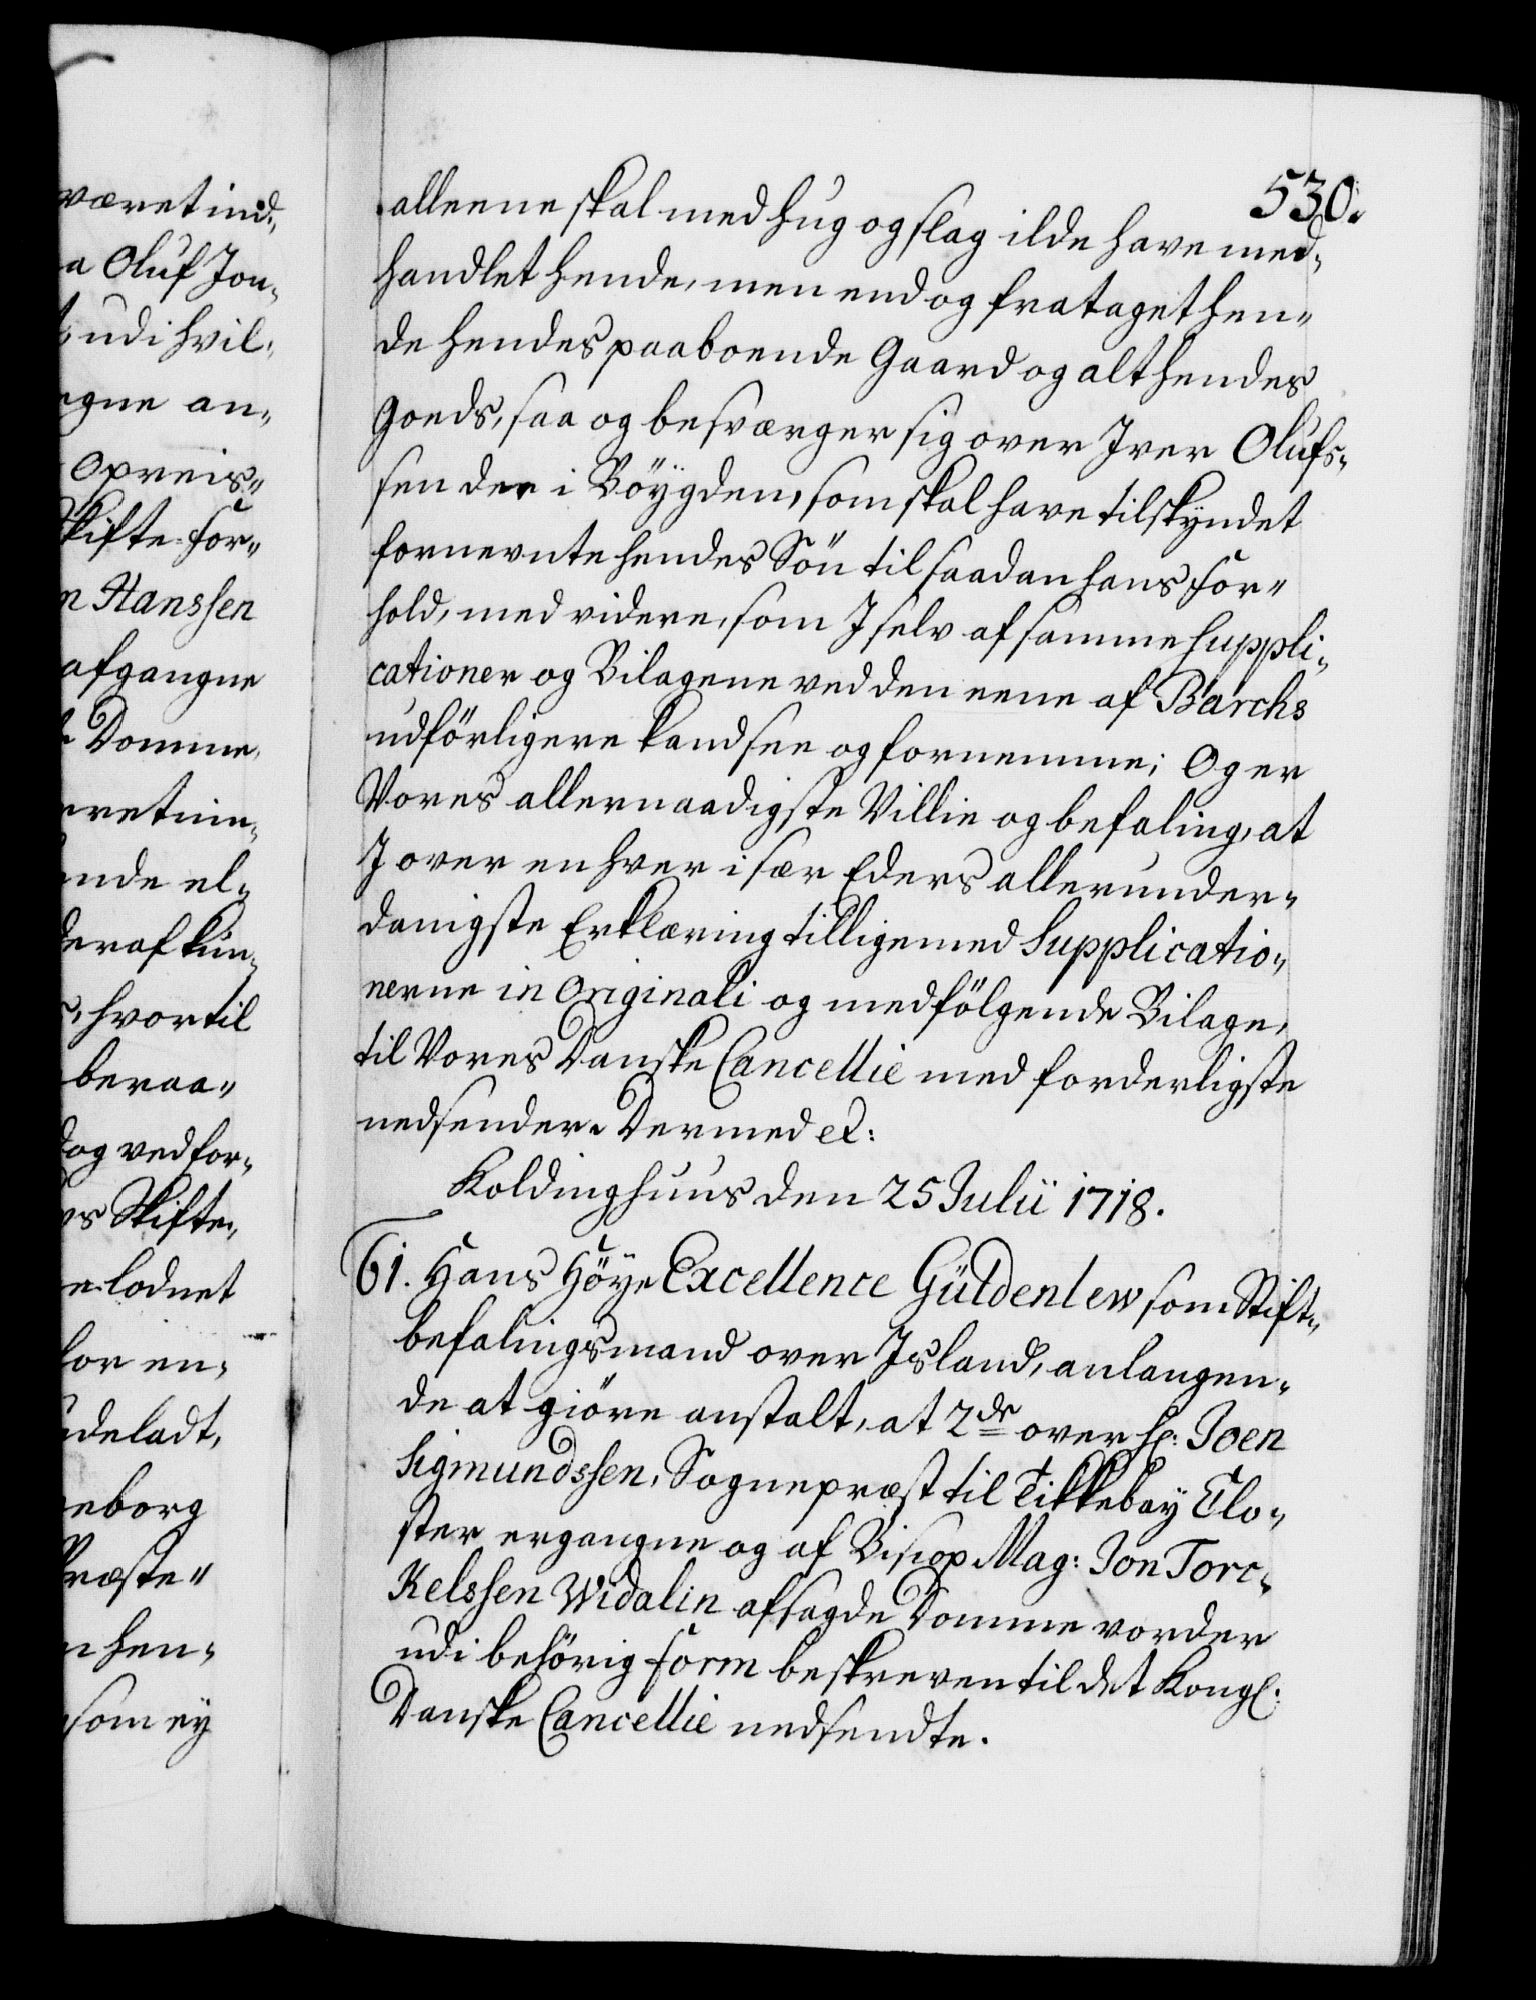 været ind„
a Oluf Jon„
t, udi hvil„
egne an„
Opreis„
Skifte-for„
n Hanssen
afgangne
t Domme,
rretnin„
ende el„
deraf kun„
s, hvortil
beraa„
dog ved for„
vs Skifte„
e lodnet
for en„
udeladt,
neborg
Præste„
n hen„
som ey
530.
alleene skal med hug og slag ilde have med„
handlet hende, men end og frataget hen„
de hendes paaboende Gaard og alt hendes
Goeds, saa og besværger sig over Iver Olufs„
sen der i Böygden, som skal have tilskyndet
fornevnte hendes Sön til saadan hans for„
hold, med videre, som I selv af samme Suppli„
cationer og Bilagene ved den eene af Barchs
udförligere kand see og fornemme; Og er
Vores allernaadigste Villie og befaling, at
I over en hver især Eders allerunder„
danigste Erklæring tilligemed Supplicatio„
nerne in Originali og medfölgende Bilage,
til Vores Danske Cancellie med forderligste
nedsender. Dermed ec:
Koldinghuus den 25 Julii 1718.
61. Hans Höye Excellence Güldenlew som Stift„
befalingsmand over Island, anlangen„
de at giöre anstalt, at 2de over Hr: Joen
Sigmundssen, Sognepræst til Tikkebay Clo„
ster ergangne og af Biscop Mag: Jon Torc„
Kelssen Widalin afsagde Domme vorder
udi behörig form beskreven til det Kongl:
Danske Cancellie nedsendte.